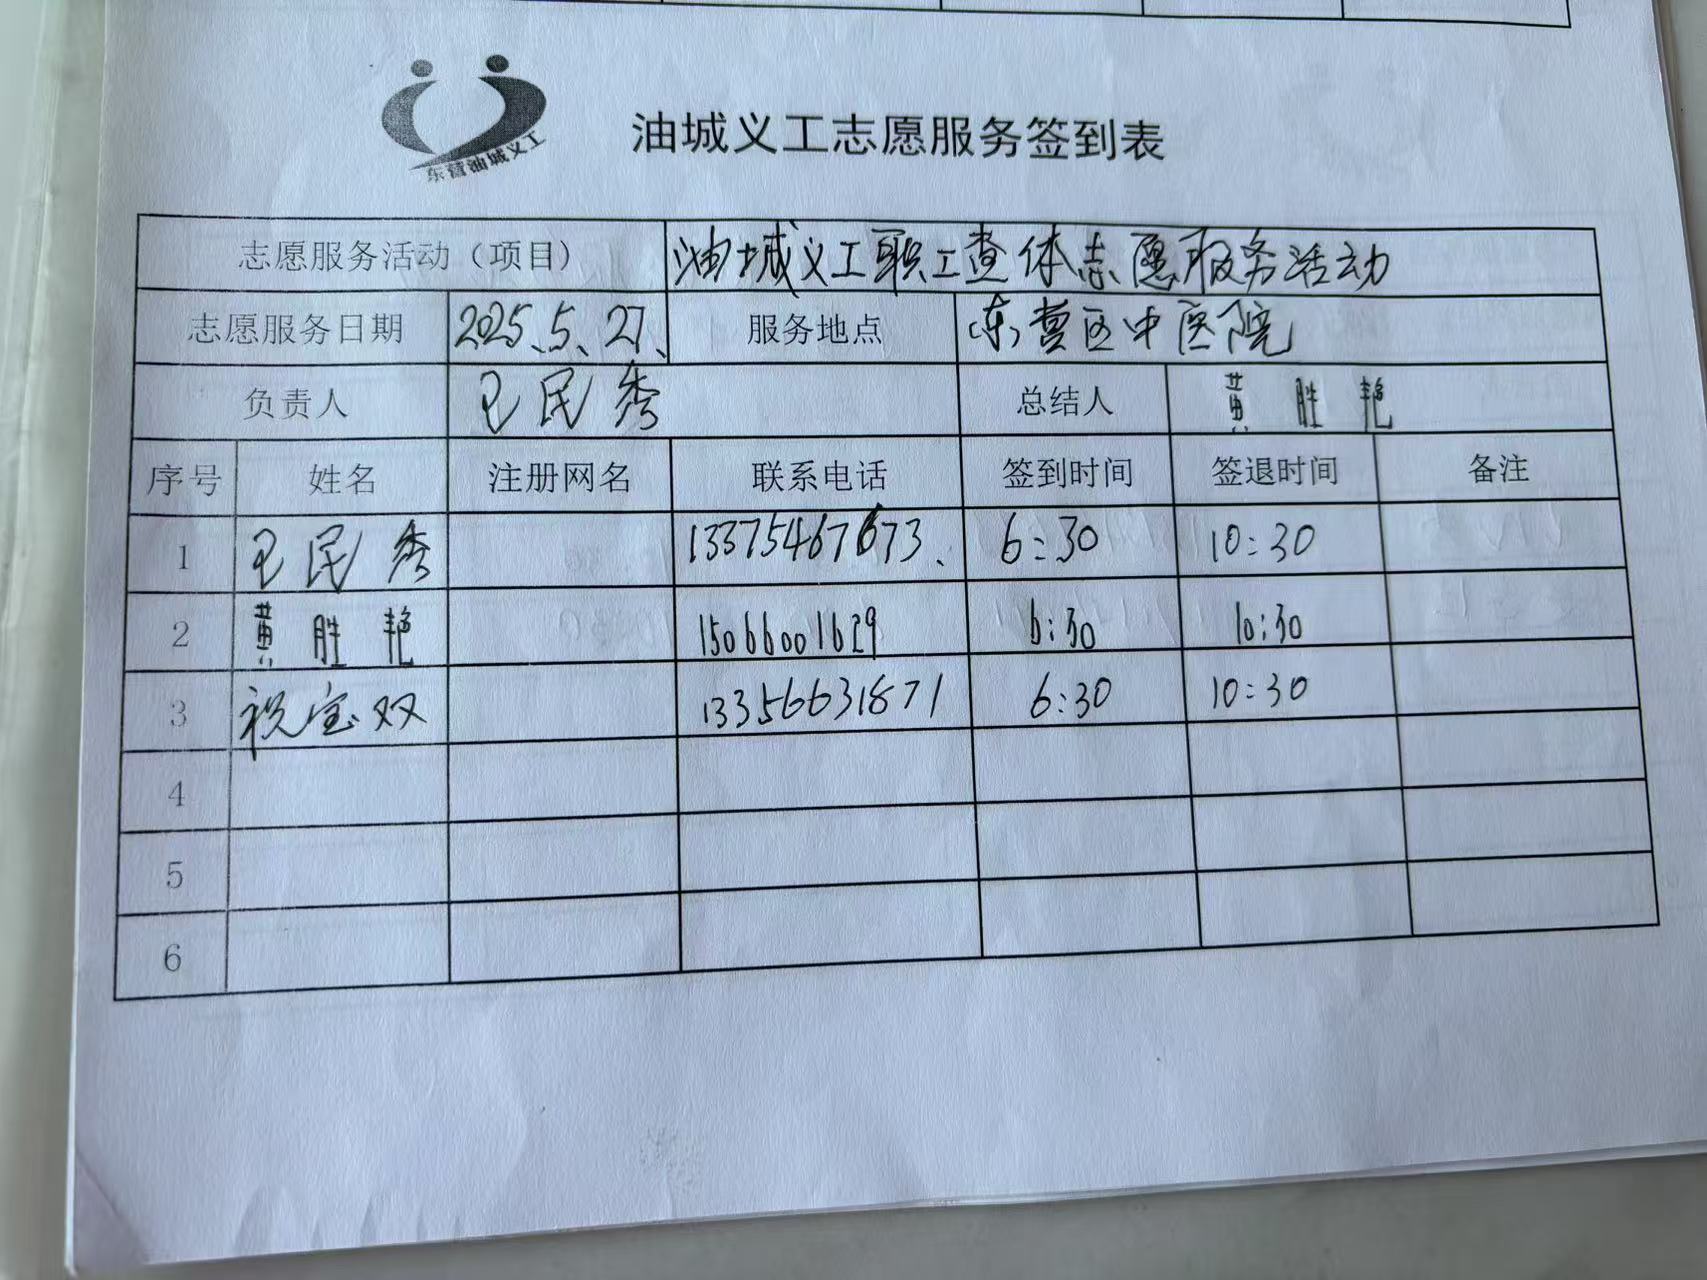 东营油城义工
油城义工志愿服务签到表
志愿服务活动（项目） 油城义工职工查体志愿服务活动
志愿服务日期 2025、5、27、 服务地点 东营区中医院
负责人 王民秀 总结人 黄胜艳
序号 姓名 注册网名 联系电话 签到时间 签退时间 备注
1 王民秀 13375467673、 6:30 10:30
2 黄胜艳 15066001629 6:30 10:30
3 祝宝双 13356631871 6:30 10:30
4
5
6